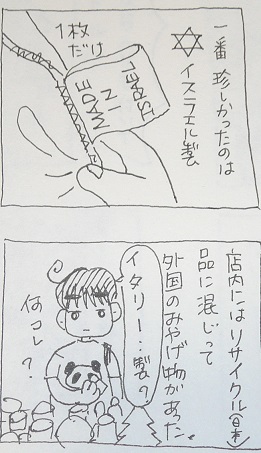 一番珍しかったのは
イスラエル製
1枚
だけ
MADE
IN
ISRAEL
店内にはリサイクル(日本)
品に混じって
外国のみやげ物があった。
イタリー‥製?
何コレ?